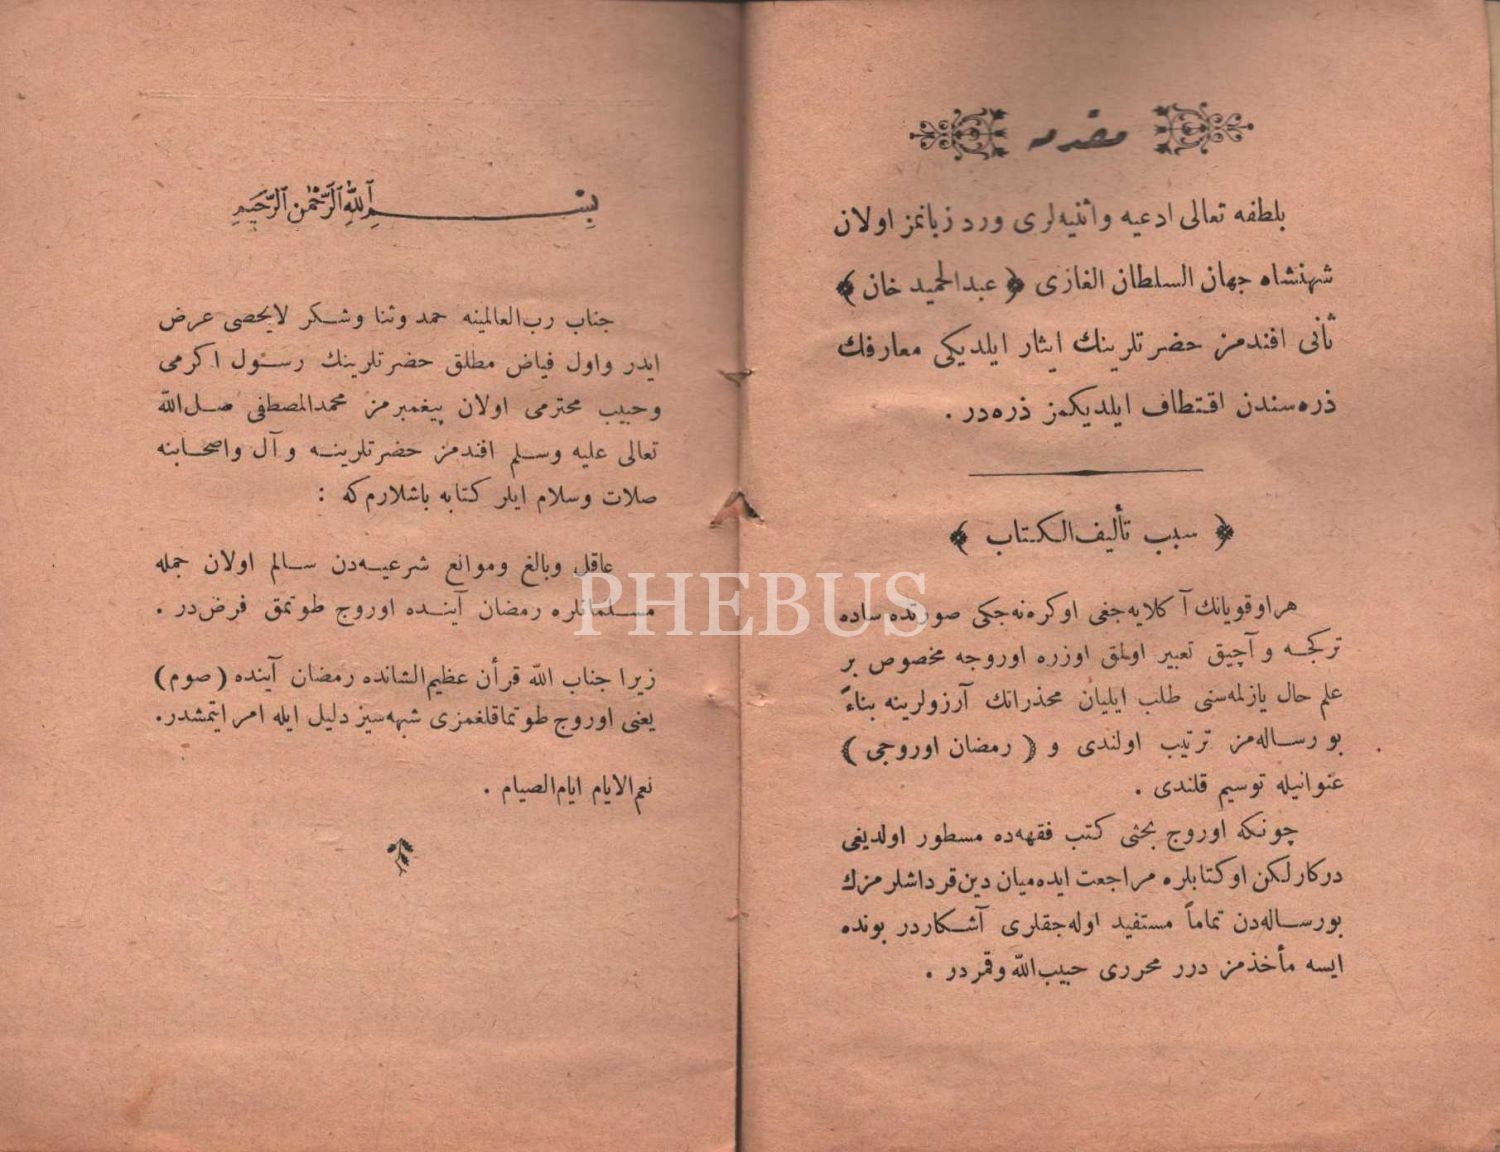 مقدمه
بلطفه تعالی ادعیه واثنیه‌لری ورد زبانمز اولان
شهنشاه جهان السلطان الغازی ﴿ عبدالحمید خان ﴾
ثانی افندمز حضرتلرینك ایثار ایلدیکی معارفك
ذره‌سندن اقتطاف ایلدیکمز ذره‌در .
﴿ سبب تألیف الکتاب ﴾
هر اوقویانك آکلایه‌جغی اوکره‌نه‌جکی صورتده ساده
ترکجه و آچیق تعبیر اولمق اوزره اوروجه مخصوص بر
علم حال یازلمه‌سنی طلب ایلیان مخدراتك آرزولرینه بناءً
بو رساله‌مز ترتیب اولندی و ( رمضان اوروجی )
عنوانیله توسیم قلندی .
چونکه اوروج بحثی کتب فقهیه‌ده مسطور اولدیغی
درکار لکن او کتابلره مراجعت ایده‌میان دین قرداشلرمزك
بو رساله‌دن تماماً مستفید اوله‌جقلری آشکاردر بونده
ایسه مأخذمز درر محرری حبیب‌الله وقمردر .
بسم الله الرحمن الرحیم
جناب رب‌العالمینه حمد وثنا وشکر لایحصی عرض
ایدر واول فیاض مطلق حضرتلرینك رسول اکرمی
وحبیب محترمی اولان پیغمبرمز محمدالمصطفی صل‌الله
تعالی علیه وسلم افندمز حضرتلرینه و آل واصحابنه
صلات وسلام ایلر کتابه باشلارم‌که :
عاقل وبالغ وموانع شرعیه‌دن سالم اولان جمله
مسلمانلره رمضان آینده اوروج طوتمق فرض‌در .
زیرا جناب الله قرأن عظیم‌الشانده رمضان آینده ( صوم )
یعنی اوروج طوتماقلغمزی شبهه‌سز دلیل ایله امر ایتمشدر.
نعم‌الایام ایام‌الصیام .
PHEBUS